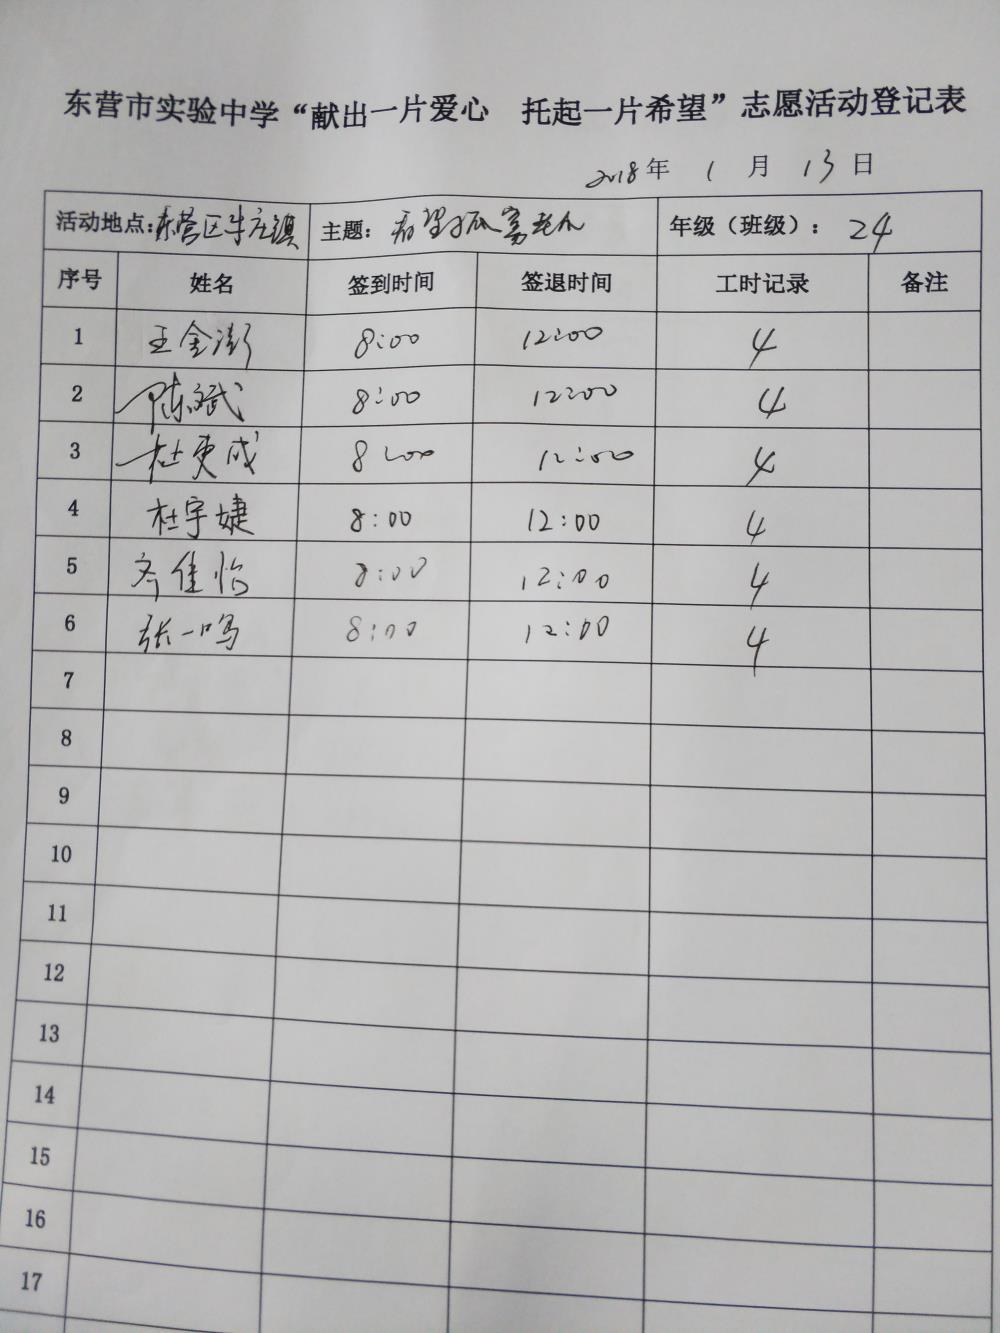 东营市实验中学“献出一片爱心 托起一片希望”志愿活动登记表
2018年 1 月 13 日
活动地点：东营区牛庄镇 主题： 看望孤寡老人 年级（班级）： 24
序号 姓名 签到时间 签退时间 工时记录 备注
1 王金澎 8:00 12:00 4
2 陈斌 8:00 12:00 4
3 杜更成 8:00 12:00 4
4 杜宇婕 8:00 12:00 4
5 齐佳怡 8:00 12:00 4
6 张一鸣 8:00 12:00 4
7
8
9
10
11
12
13
14
15
16
17